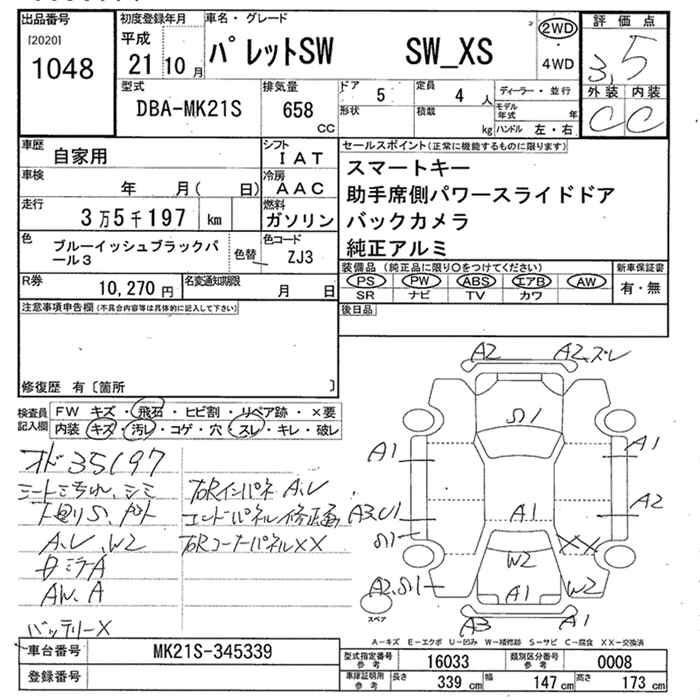 出品番号
[2020]
1048
初度登録年月
平成
21年10月
車名・グレード
パレットSW SW_XS
2WD
・
4WD
評価点
3.5
外装 内装
C C
型式
DBA-MK21S
排気量
658
CC
ドア
5
形状
定員
4 人
積載
kg
ディーラー・並行
モデル年式 年
ハンドル 左・右
車歴
自家用
シフト
IAT
車検
年 月( 日)
冷房
AAC
走行
3万5千197 km
燃料
ガソリン
色
ブルーイッシュブラックパール3
色替
色コード
ZJ3
R券
10,270 円
名変通知期限
月 日
セールスポイント(正常に機能するものに限ります)
スマートキー
助手席側パワースライドドア
バックカメラ
純正アルミ
装備品 (純正品に限り○をつけてください)
PS PW ABS エアB AW
SR ナビ TV カワ
新車保証書
有・無
後日品
注意事項申告欄(不具合内容等は具体的に記入して下さい)
修復歴 有〔箇所 〕
検査員記入欄
FW キズ・飛石・ヒビ割・リペア跡・×要
内装 キズ・汚レ・コゲ・穴・スレ・キレ・破レ
オド35197
シート汚れ、シミ
A、U、W2
AW.A
バッテリーX
右Rインパネ A、U
エンドパネル修正歪
右RコーナーパネルXX
A2
A2、ズレ
A1
A1
A1
A2
A3、U1
XX
W2
W2
A1
A3
A1
スペア
A－キズ E－エクボ U－凹み W－補修跡 S－サビ C－腐食 XX－交換済
車台番号
MK21S-345339
登録番号
型式指定番号
参考
16033
類別区分番号
参考
0008
車庫証明用
参考
長さ
339 cm
幅
147 cm
高さ
173 cm